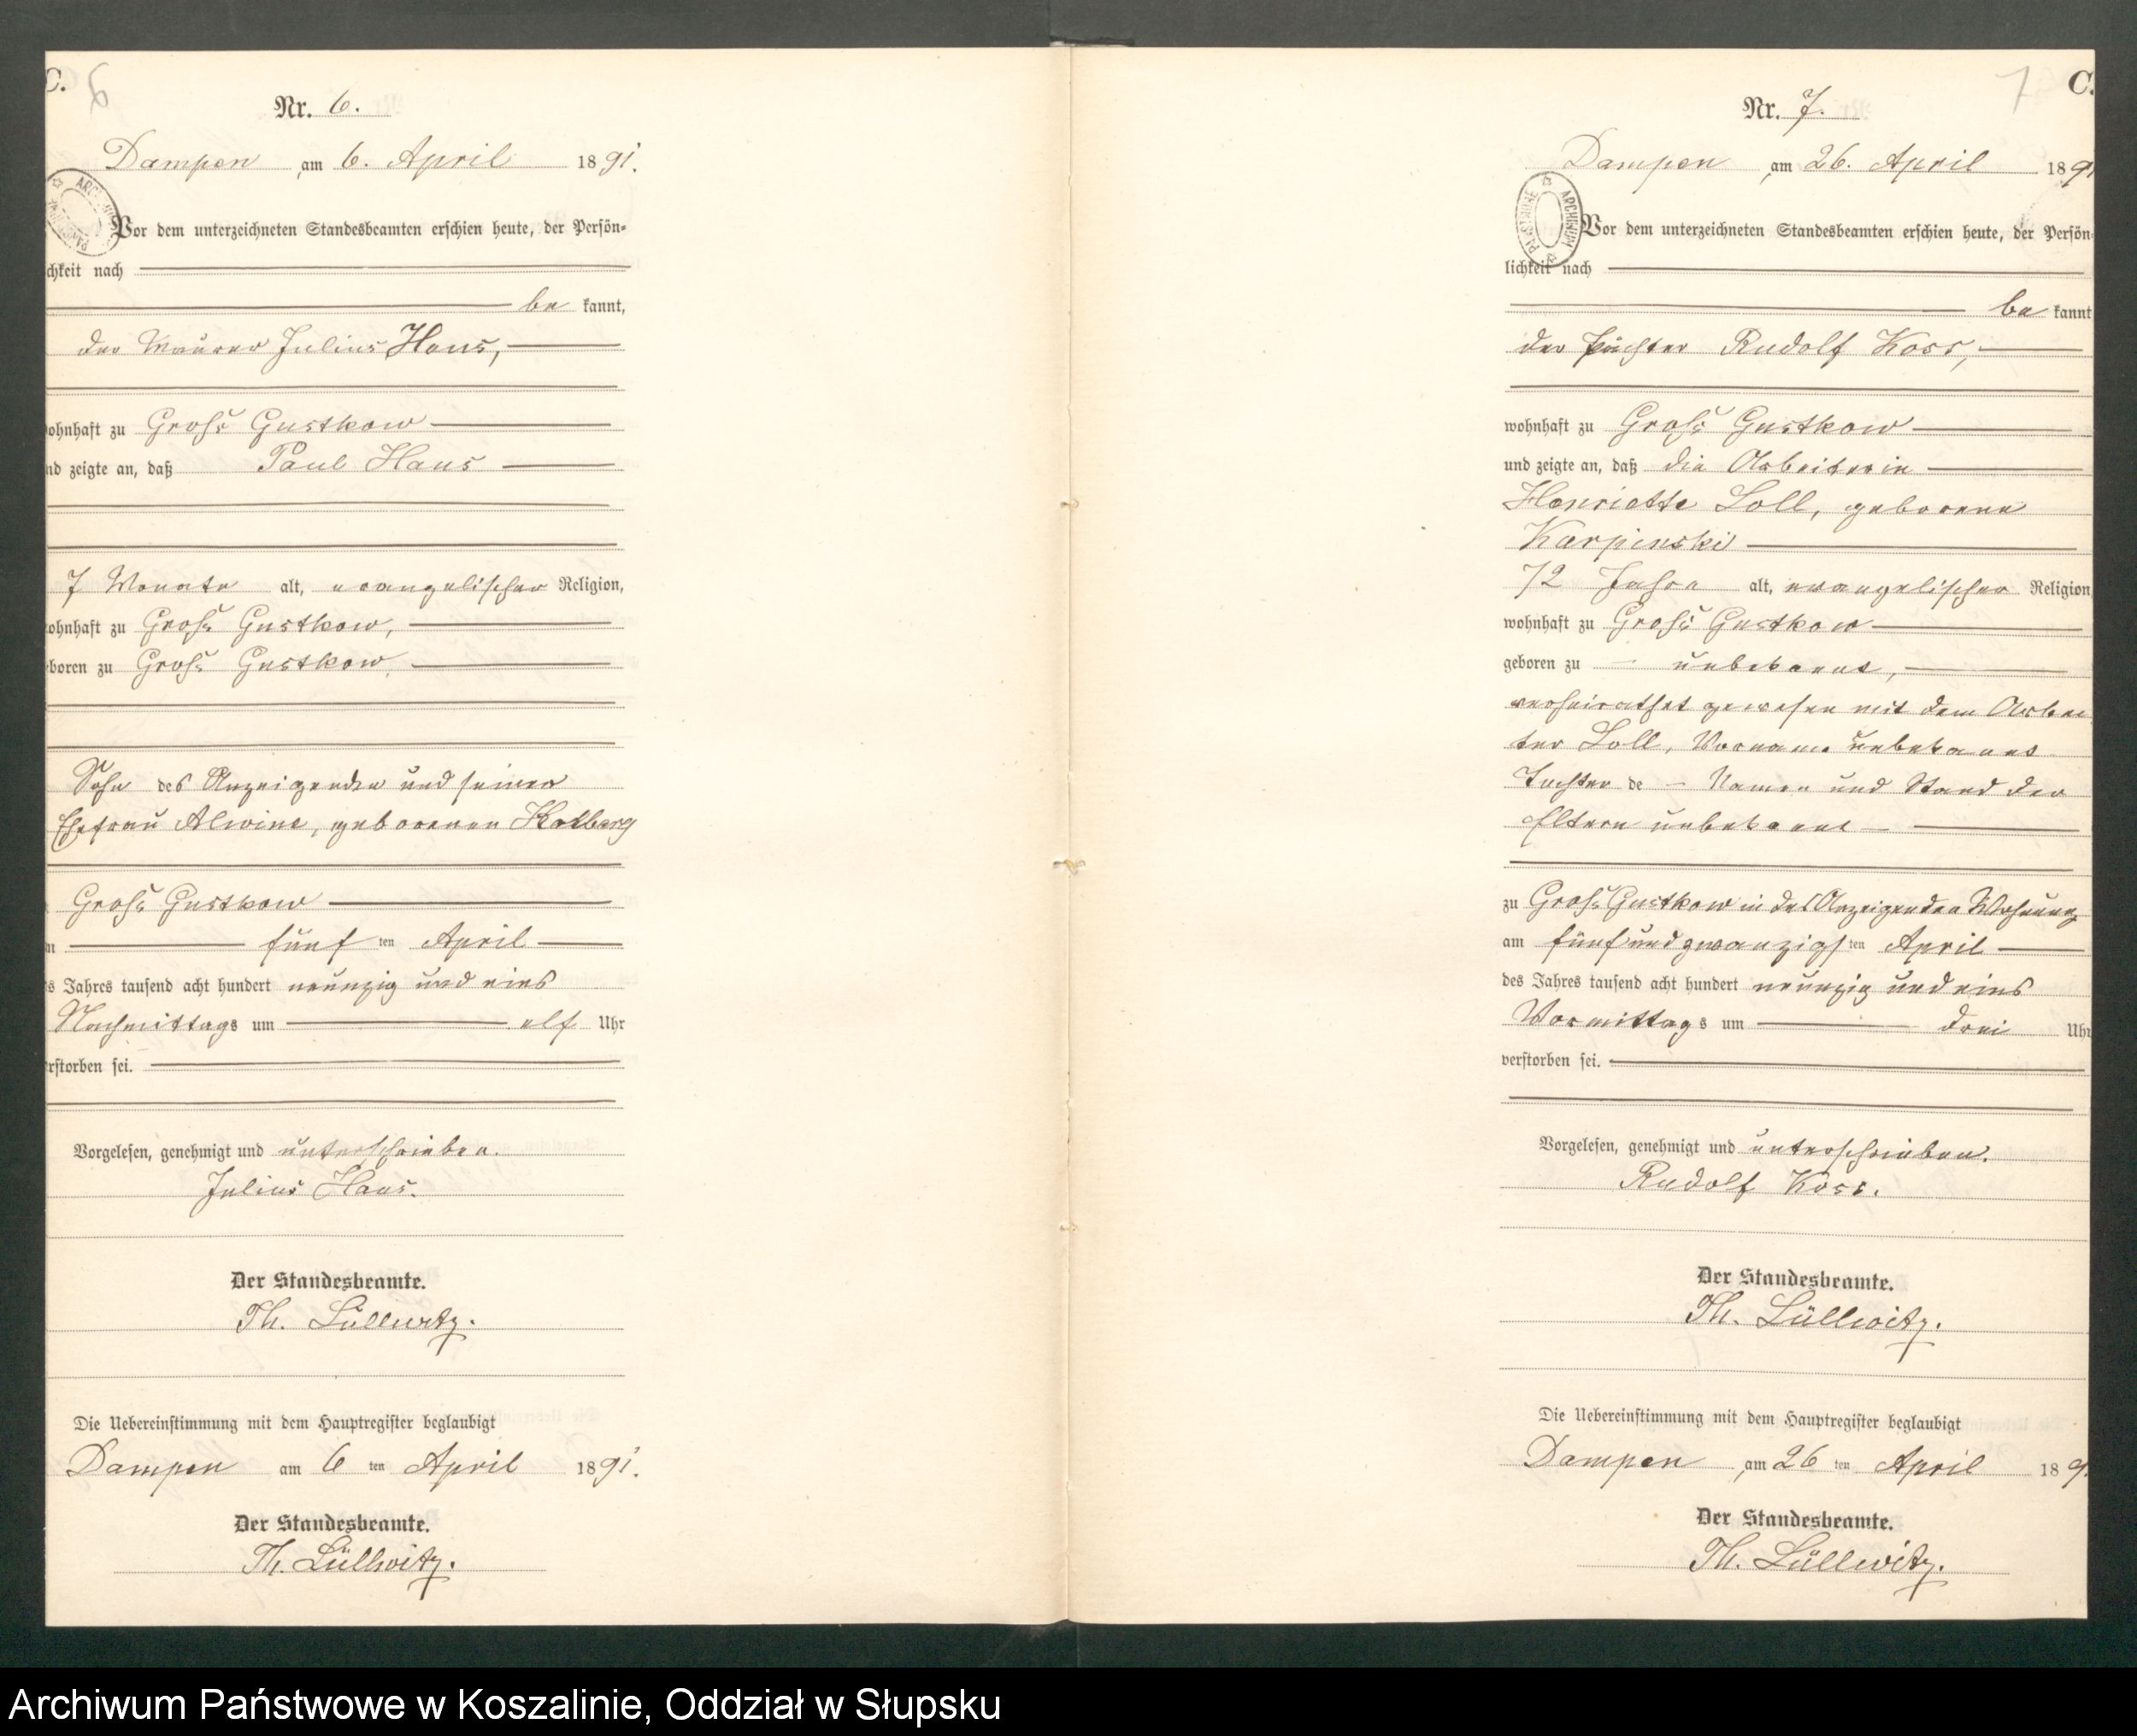 C.
6
Nr. 6.
Dampen am 6. April 1891.
Vor dem unterzeichneten Standesbeamten erschien heute, der Persön=
chkeit nach
be kannt,
der Maurer Julius Haus,
ohnhaft zu Gross Gustkow
nd zeigte an, daß Paul Haus
7 Monate alt, evangelischer Religion,
ohnhaft zu Gross Gustkow,
boren zu Gross Gustkow,
Sohn des Anzeigenden und seiner
Ehefrau Alwine, geborenen
Gross Gustkow
fünf ten April
s Jahres tausend acht hundert neunzig und eins
Nachmittags um elf Uhr
rstorben sei.
Vorgelesen, genehmigt und unterschrieben.
Julius Haus.
Der Standesbeamte.
Th. Lüllwitz.
Die Uebereinstimmung mit dem Hauptregister beglaubigt
Dampen am 6 ten April 1891.
Der Standesbeamte.
Th. Lüllwitz.
7
C.
Nr. 7.
Dampen am 26. April 189
Vor dem unterzeichneten Standesbeamten erschien heute, der Persön
lichkeit nach
be kannt
der Pächter Rudolf Koss,
wohnhaft zu Gross Gustkow
und zeigte an, daß die Arbeiterin
Henriette Loll, geborene
Karpinski
72 Jahre alt, evangelischer Religion
wohnhaft zu Gross Gustkow
geboren zu – unbekannt,
verheirathet gewesen mit dem Arbei
ter Loll, Vorname unbekannt
Tochter de – Namen und Stand der
Eltern unbekannt –
zu Gross Gustkow in des Anzeigenden Wohnung
am fünf und zwanzigs ten April
des Jahres tausend acht hundert neunzig und eins
Vormittags um drei Uhr
verstorben sei.
Vorgelesen, genehmigt und unterschrieben.
Rudolf Koss.
Der Standesbeamte.
Th. Lüllwitz.
Die Uebereinstimmung mit dem Hauptregister beglaubigt
Dampen am 26 ten April 189
Der Standesbeamte.
Th. Lüllwitz.
Archiwum Państwowe w Koszalinie, Oddział w Słupsku